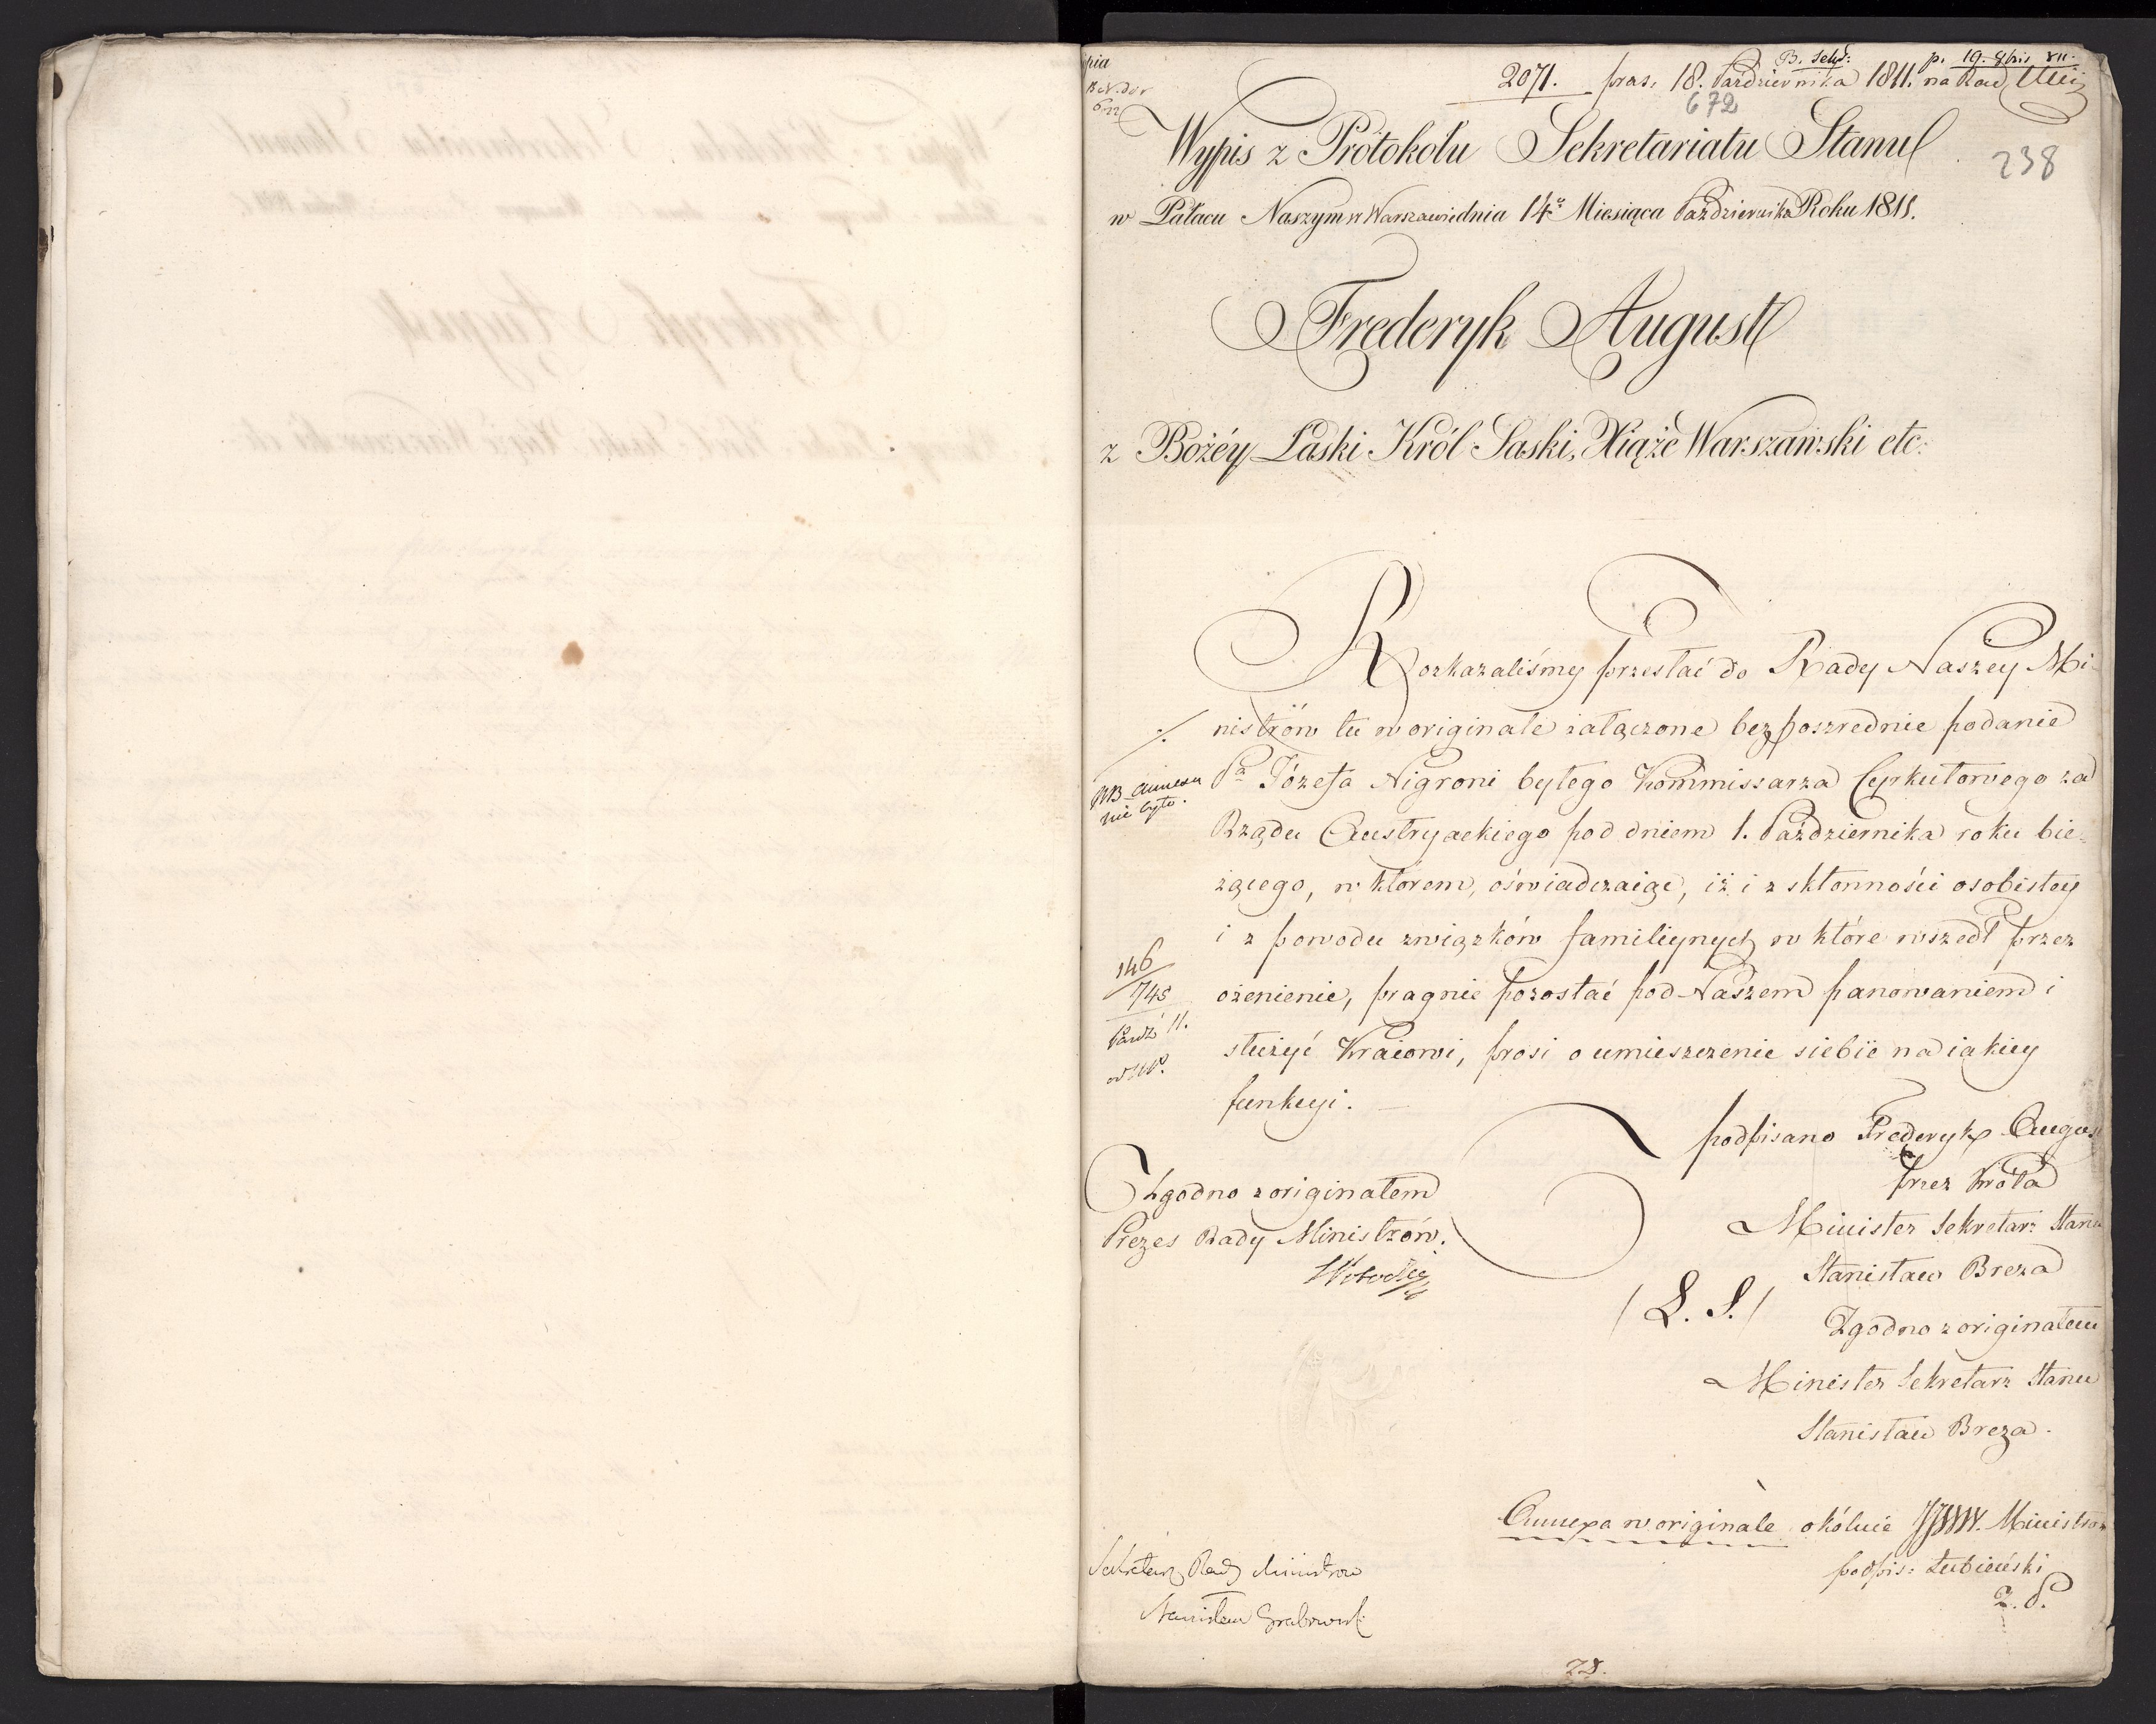 pia
2071. pras. 18. Października 1811. na Rad Min
B. Sekr:
p. 19. 8bris XII.
672
238
Wypis z Protokołu Sekretariatu Stanu
w Pałacu Naszym w Warszawie dnia 14º Miesiąca Października Roku 1811.
Frederyk August
z Bożéy Łaski Król Saski, Xiąże Warszawski etc:
Rozkazaliśmy przesłać do Rady Naszey Mi-
nistrów tu w originale załączone bezpośrzednie podanie
Pª Józefa Nigroni byłego Kommissarza Cyrkułowego za
Rządu Austryackiego pod dniem 1. Października roku bie-
żącego, w którem, oświadczaiąc, iż i z skłonności osobistey
i z powodu związków familiynych w które wszedł przez
ożenienie, pragnie pozostać pod Naszem panowaniem i
służyć Kraiowi, prosi o umieszczenie siebie na iakiey
funkcyi.
NB annexu
nie było.
146
745
Paźdź 11.
podpisano Frederyk Augus
przez Króla
Minister Sekretarz Stanu
Stanisław Breza
(L. S.)
Zgodno z originałem
Minister Sekretarz Stanu
Stanisław Breza.
Zgodno z originałem
Prezes Rady Ministrów.
Annexa w originale okólnie JJWW. Ministrom
podpis: Łubieński
Sekretarz Rady Ministrow
Stanisław Grabowski
28.